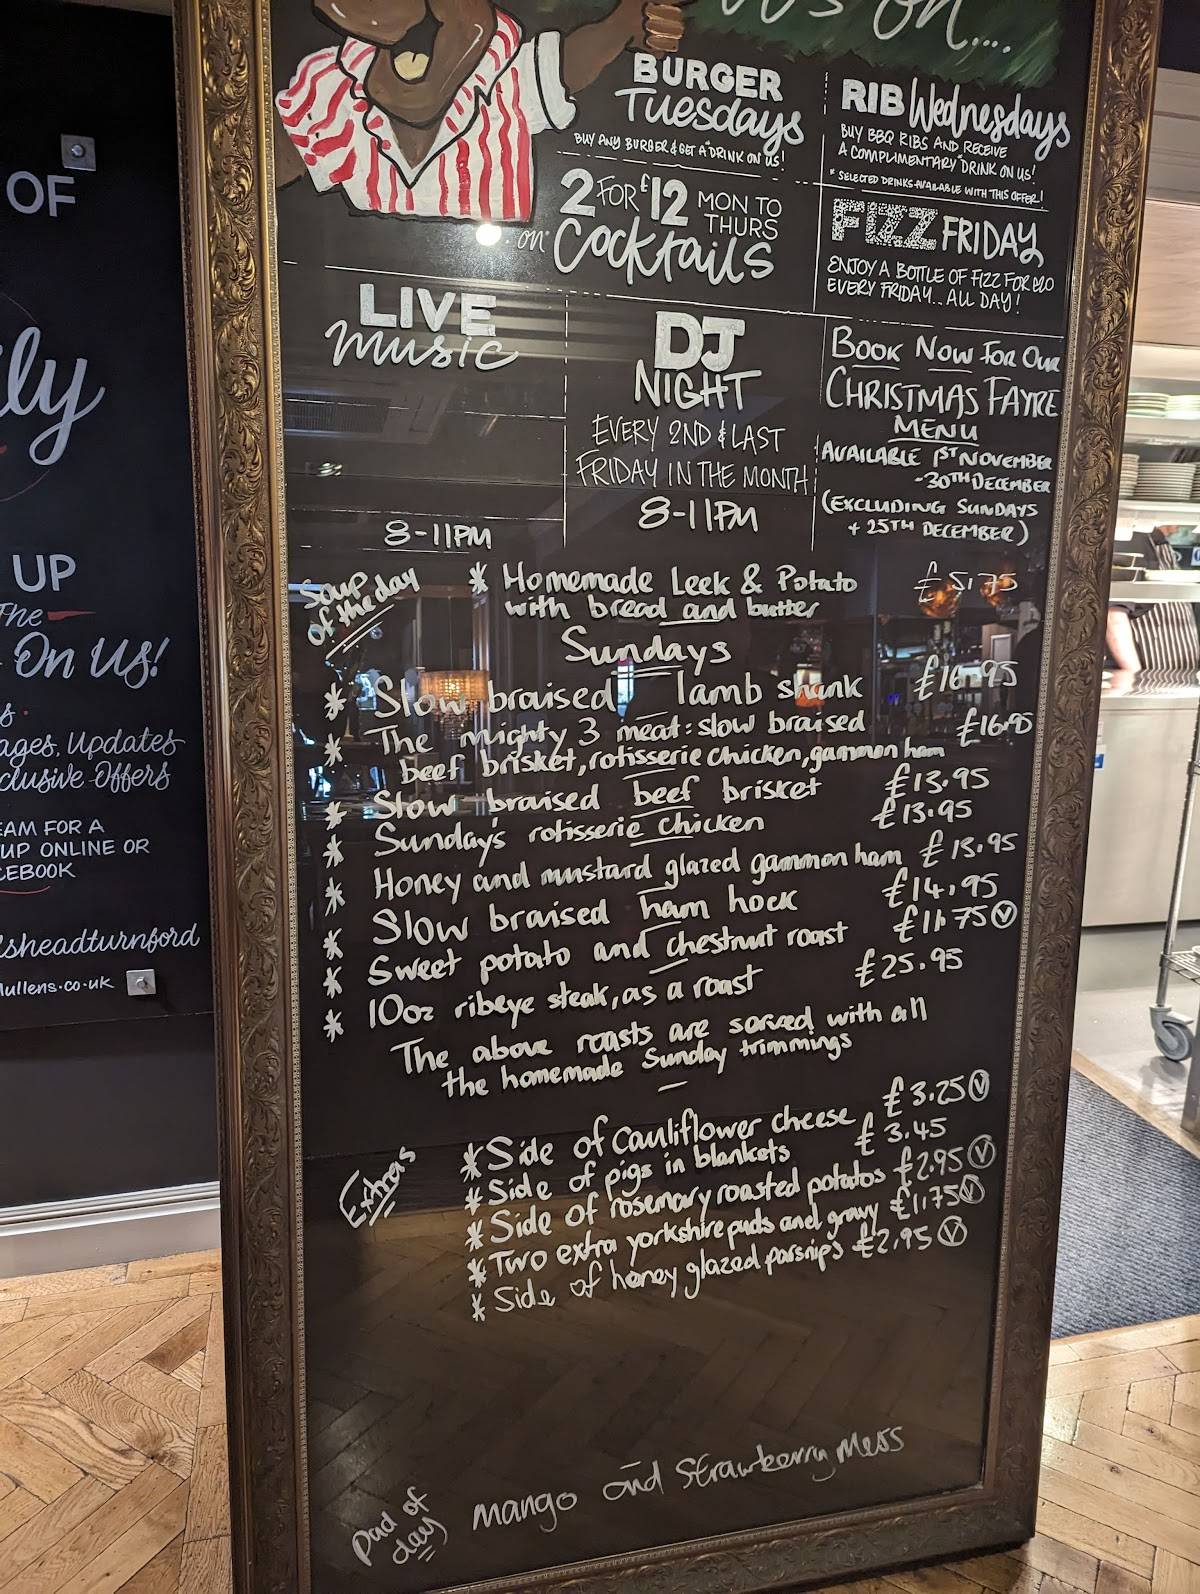 OF
ly
UP
The
On Us!
ages, Updates
clusive Offers
EAM FOR A
UP ONLINE OR
CEBOOK
sheadturnford
Mullens.co.uk
on....
BURGER
Tuesdays
BUY ANY BURGER & GET A "DRINK ON US!
2 FOR £12 MON TO
THURS
on Cocktails
RIB Wednesdays
BUY BBQ RIBS AND RECEIVE
A COMPLIMENTARY "DRINK ON US!
* SELECTED DRINKS AVAILABLE WITH THIS OFFER!
FIZZ FRIDAY
ENJOY A BOTTLE OF FIZZ FOR £20
EVERY FRIDAY... ALL DAY!
LIVE
music
8-11PM
DJ
NIGHT
EVERY 2ND & LAST
FRIDAY IN THE MONTH
8-11PM
BOOK NOW FOR OUR
CHRISTMAS FAYRE
MENU
AVAILABLE 1ST NOVEMBER
-30TH DECEMBER
(EXCLUDING SUNDAYS
+ 25TH DECEMBER)
Soup
of the day
* Homemade Leek & Potato £5.75
with bread and butter
Sundays
* Slow braised lamb shank £16.95
* The mighty 3 meat: slow braised £16.95
beef brisket, rotisserie chicken, gammon ham
* Slow braised beef brisket £13.95
* Sunday's rotisserie chicken £13.95
* Honey and mustard glazed gammon ham £13.95
* Slow braised ham hock £14.95
* Sweet potato and chestnut roast £11.75 V
* 10oz ribeye steak, as a roast £25.95
The above roasts are served with all
the homemade Sunday trimmings
Extras
* Side of cauliflower cheese £3.25 V
* Side of pigs in blankets £3.45
* Side of rosemary roasted potatos £2.95 V
* Two extra yorkshire puds and gravy £1.75 V
* Side of honey glazed parsnips £2.95 V
Pud of
day
mango and Strawberry Mess